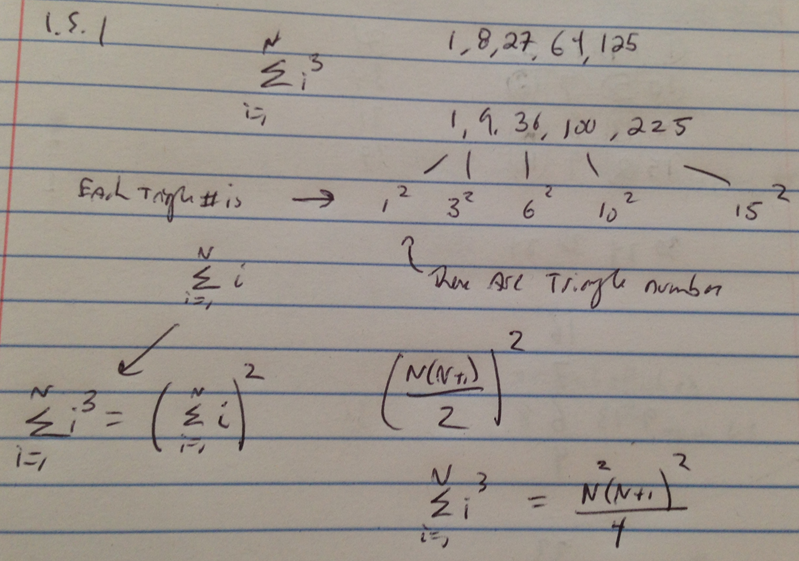 1.5.1
N Σ i=1 i³ 1, 8, 27, 64, 125
1, 9, 36, 100, 225
Each Triangle # is → 1² 3² 6² 10² 15²
N Σ i=1 i These Are Triangle number
N Σ i=1 i³ = (N Σ i=1 i)² (N(N+1)/2)²
N Σ i=1 i³ = N²(N+1)²/4